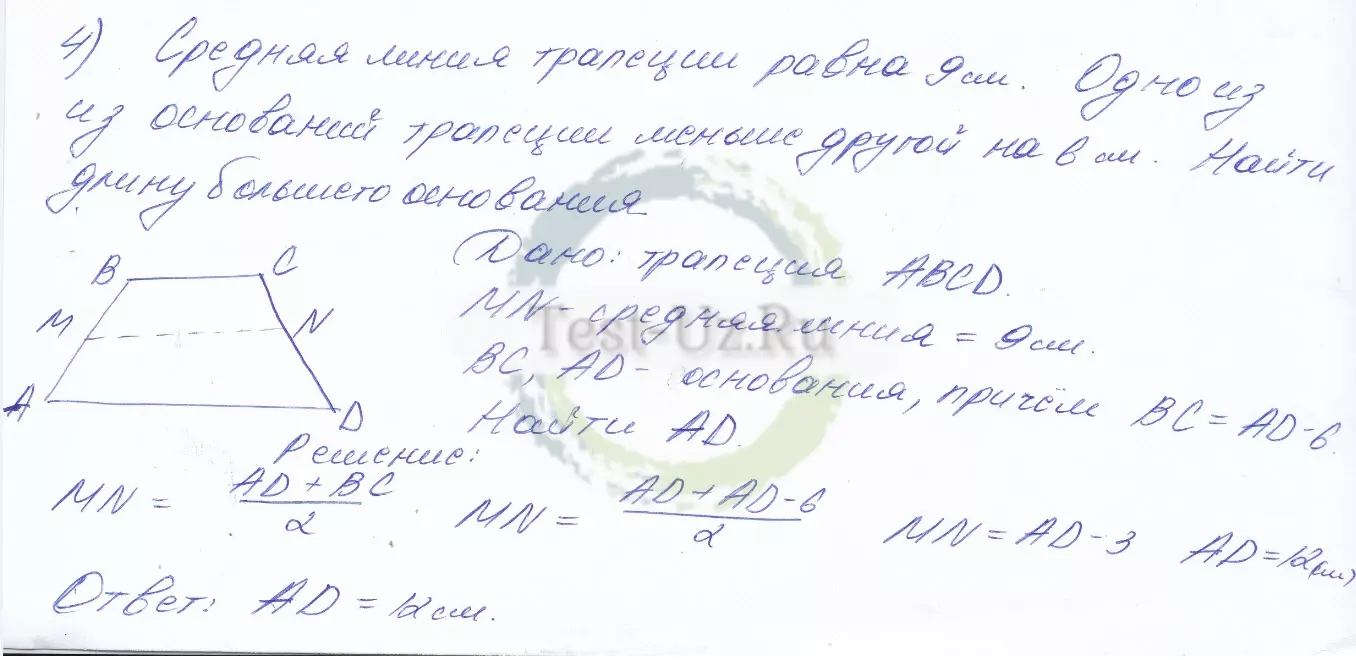 4) Средняя линия трапеции равна 9 см. Одно из
из оснований трапеции меньше другой на 6 см. Найти
длину большего основания
B C
M N
A D
Дано: трапеция ABCD.
MN - средняя линия = 9 см.
BC, AD - основания, причём BC = AD - 6.
Найти AD.
Test-Uz.Ru
Решение:
MN = AD + BC / 2 MN = AD + AD - 6 / 2 MN = AD - 3 AD = 12 (см)
Ответ: AD = 12 см.